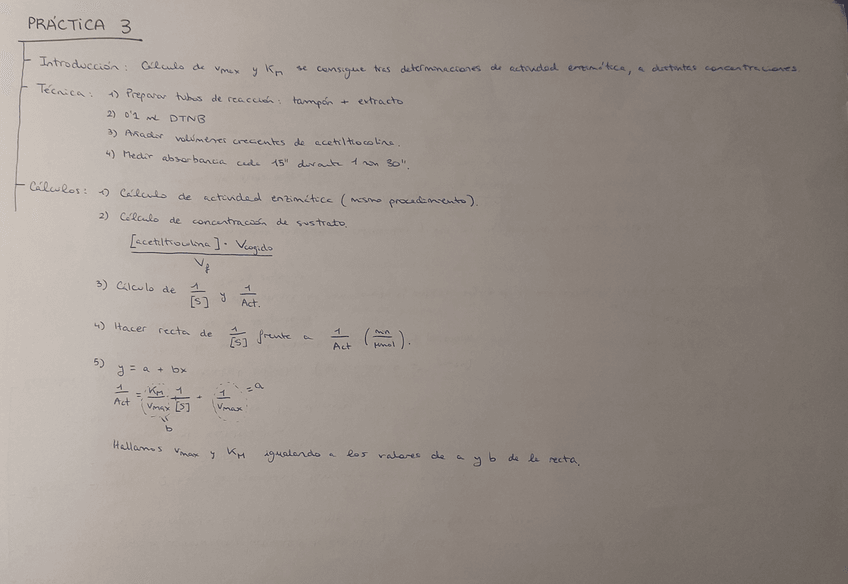 PRÁCTICA 3
Introducción: Cálculo de vmax y KM se consigue tras determinaciones de actividad enzimática, a distintas concentraciones.
Técnica: 1) Preparar tubos de reacción: tampón + extracto
2) 0'1 ml DTNB
3) Añadir volúmenes crecientes de acetiltiocolina.
4) Medir absorbancia cada 15" durante 1 min 30".
Cálculos: 1) Cálculo de actividad enzimática (mismo procedimiento).
2) Cálculo de concentración de sustrato.
[acetiltiocolina] · Vcogido / Vf
3) Cálculo de 1/[S] y 1/Act.
4) Hacer recta de 1/[S] frente a 1/Act (min/μmol).
5) y = a + bx
1/Act = KM/vmax 1/[S] + 1/vmax = a
b
Hallamos vmax y KM igualando a los valores de a y b de la recta.